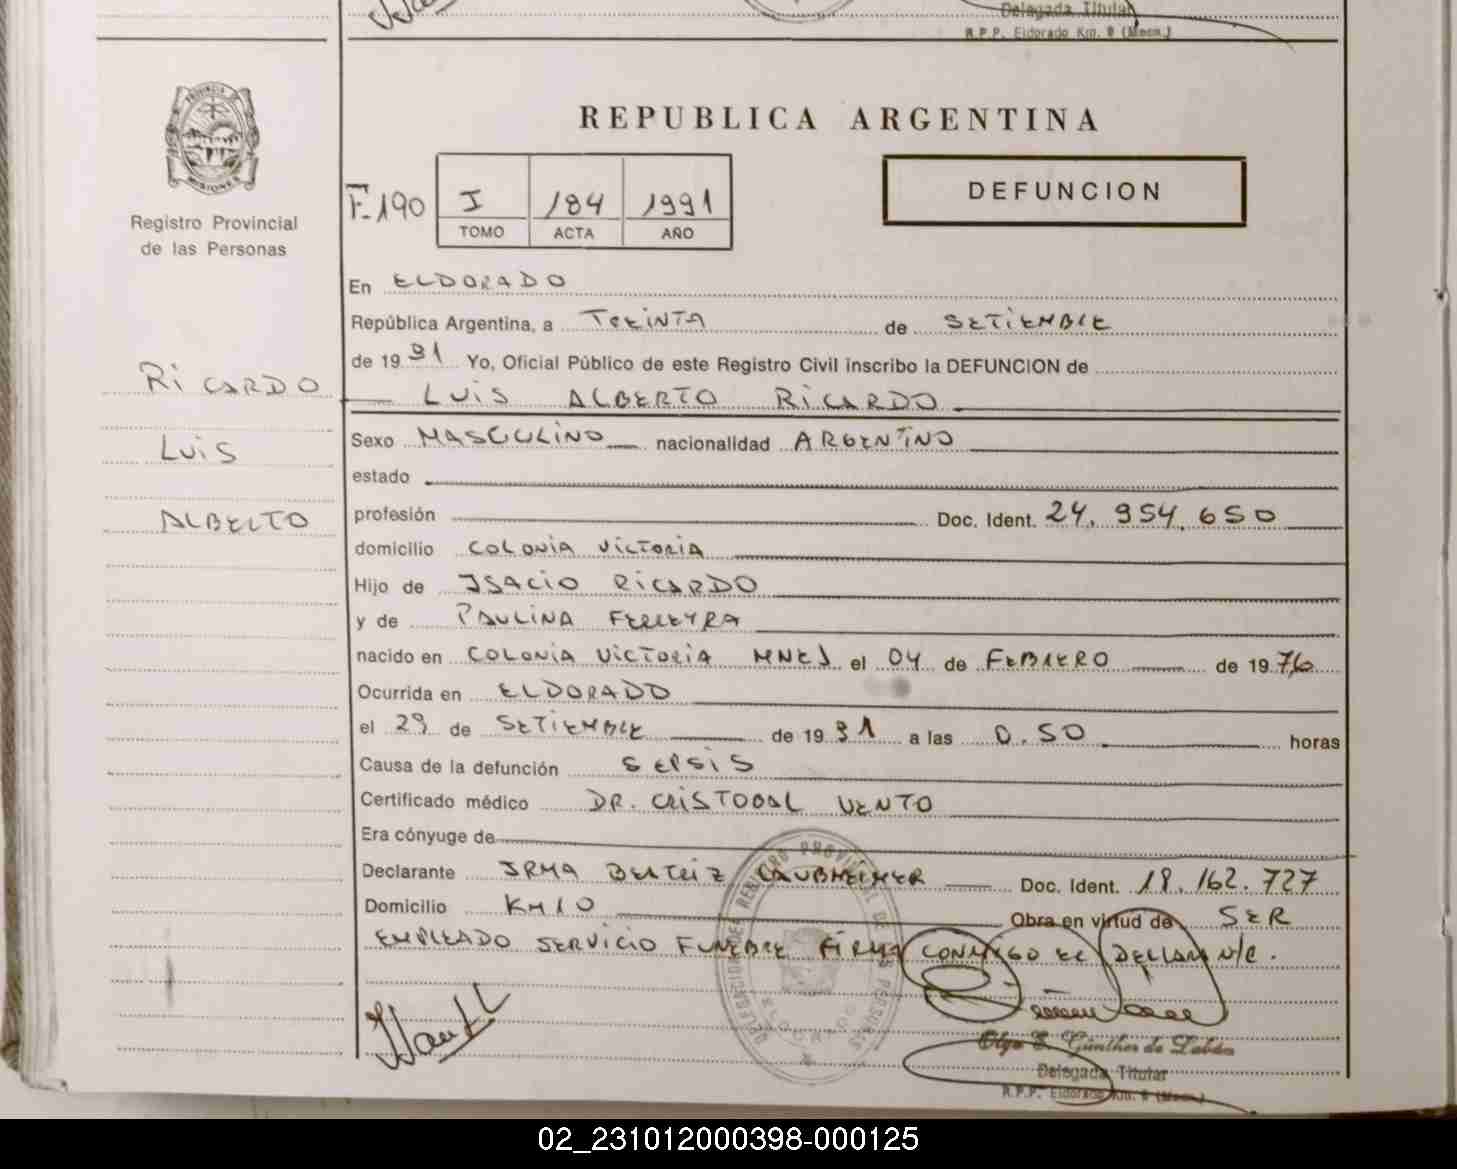 Delegada Titular
R.P.P. Eldorado Km. 9 (Mnes.)
PROVINCIA DE
MISIONES
Registro Provincial
de las Personas
REPUBLICA ARGENTINA
F-190
I
184
1991
TOMO
ACTA
AÑO
DEFUNCION
RICARDO
LUIS
ALBERTO
En ELDORADO
República Argentina, a TREINTA de SETIEMBRE
de 1991 Yo, Oficial Público de este Registro Civil inscribo la DEFUNCION de
LUIS ALBERTO RICARDO
Sexo MASCULINO nacionalidad ARGENTINO
estado
profesión Doc. Ident. 24.954.650
domicilio COLONIA VICTORIA
Hijo de ISACIO RICARDO
y de PAULINA FERREYRA
nacido en COLONIA VICTORIA MNES el 04 de FEBRERO de 1976
Ocurrida en ELDORADO
el 29 de SETIEMBRE de 1991 a las 0.50 horas
Causa de la defunción SEPSIS
Certificado médico DR. CRISTOBAL VENTO
Era cónyuge de
Declarante IRMA BEATRIZ LAUBMEIMER Doc. Ident. 18.162.727
Domicilio KM10 Obra en virtud de SER
EMPLEADO SERVICIO FUNEBRE FIRMA CONMIGO EL
Olga E. Günther de Labán
Delegada Titular
R.P.P. Eldorado Km. 9 (Mnes.)
02_231012000398-000125